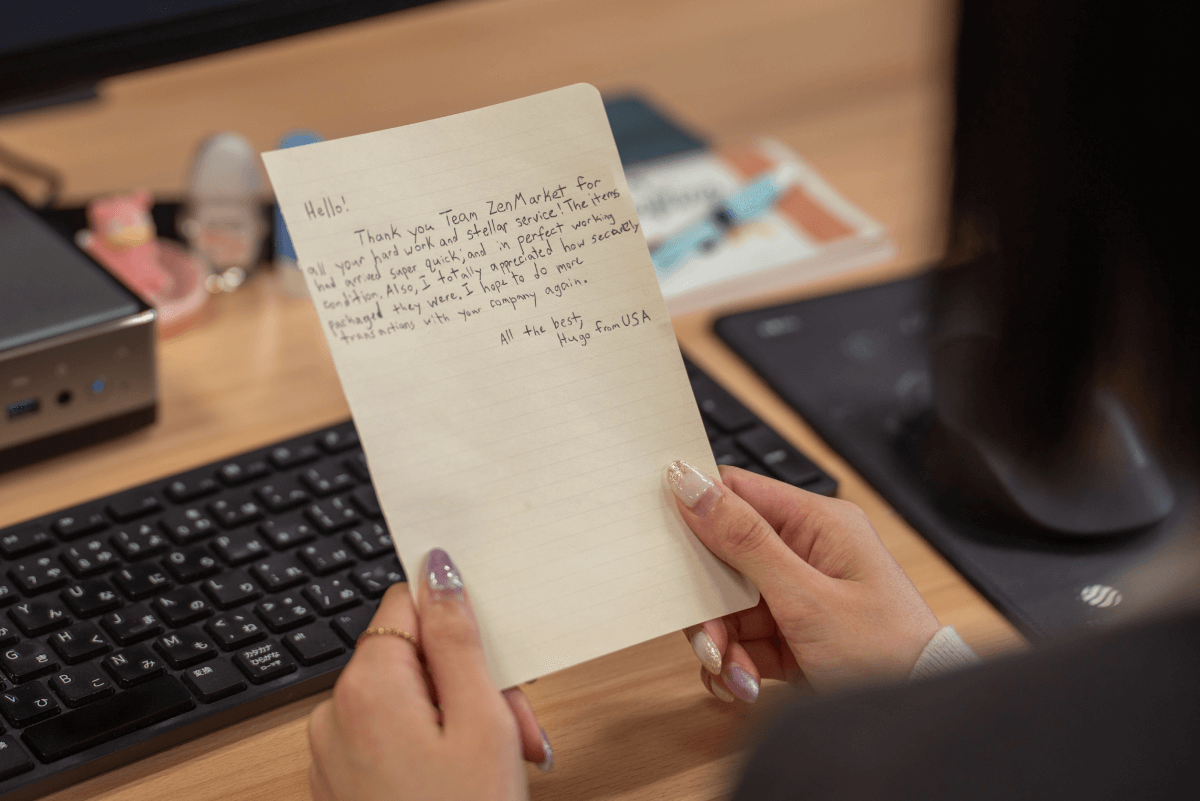 Hello!
Thank you Team ZenMarket for
all your hard work and stellar service! The items
had arrived super quick; and in perfect working
condition. Also, I totally appreciated how securely
packaged they were. I hope to do more
transactions with your company again.
All the best,
Hugo from USA
Y ん
U な
G き
H く
J ま
V ひ
B こ
N み
M も
変換
カタカナ
ひらがな
ローマ字